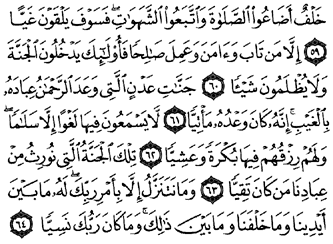 خَلْفٌ أَضَاعُوا۟ ٱلصَّلَوٰةَ وَٱتَّبَعُوا۟ ٱلشَّهَوَٰتِ ۖ فَسَوْفَ يَلْقَوْنَ غَيًّا
٥٩ إِلَّا مَن تَابَ وَءَامَنَ وَعَمِلَ صَٰلِحًا فَأُو۟لَٰٓئِكَ يَدْخُلُونَ ٱلْجَنَّةَ
وَلَا يُظْلَمُونَ شَيْـًٔا ٦٠ جَنَّٰتِ عَدْنٍ ٱلَّتِى وَعَدَ ٱلرَّحْمَٰنُ عِبَادَهُۥ
بِٱلْغَيْبِ ۚ إِنَّهُۥ كَانَ وَعْدُهُۥ مَأْتِيًّا ٦١ لَّا يَسْمَعُونَ فِيهَا لَغْوًا إِلَّا سَلَٰمًا ۖ
وَلَهُمْ رِزْقُهُمْ فِيهَا بُكْرَةً وَعَشِيًّا ٦٢ تِلْكَ ٱلْجَنَّةُ ٱلَّتِى نُورِثُ مِنْ
عِبَادِنَا مَن كَانَ تَقِيًّا ٦٣ وَمَا نَتَنَزَّلُ إِلَّا بِأَمْرِ رَبِّكَ ۖ لَهُۥ مَا بَيْنَ
أَيْدِينَا وَمَا خَلْفَنَا وَمَا بَيْنَ ذَٰلِكَ ۚ وَمَا كَانَ رَبُّكَ نَسِيًّا ٦٤